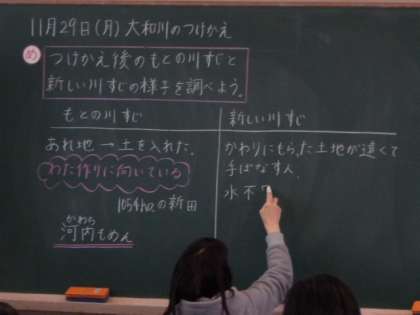 11月29日(月) 大和川のつけかえ
め
つけかえ後のもとの川すじと
新しい川すじの様子を調べよう。
もとの川すじ
あれ地 → 土を入れた.
わた作りに向いている
1054haの新田
かわち
河内もめん
新しい川すじ
かわりにもらった土地が遠くて
手ばなす人.
水不